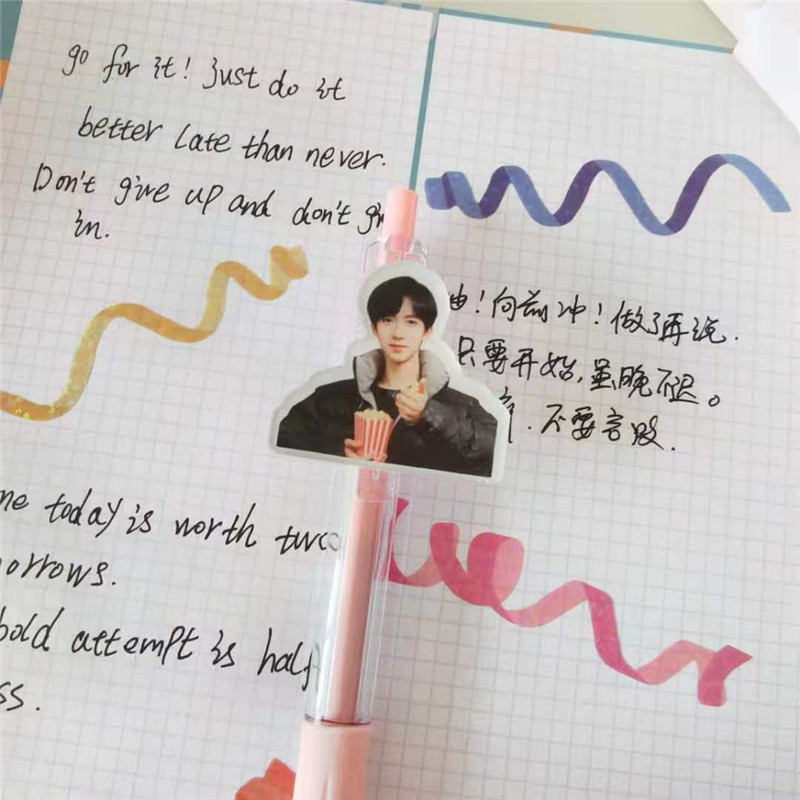 go for it! Just do it
better late than never.
Don't give up and don't
in.
！向前冲！做了再说.
只要开始,虽晚不迟。
.不要言败.
today is worth two
bold attempt is half